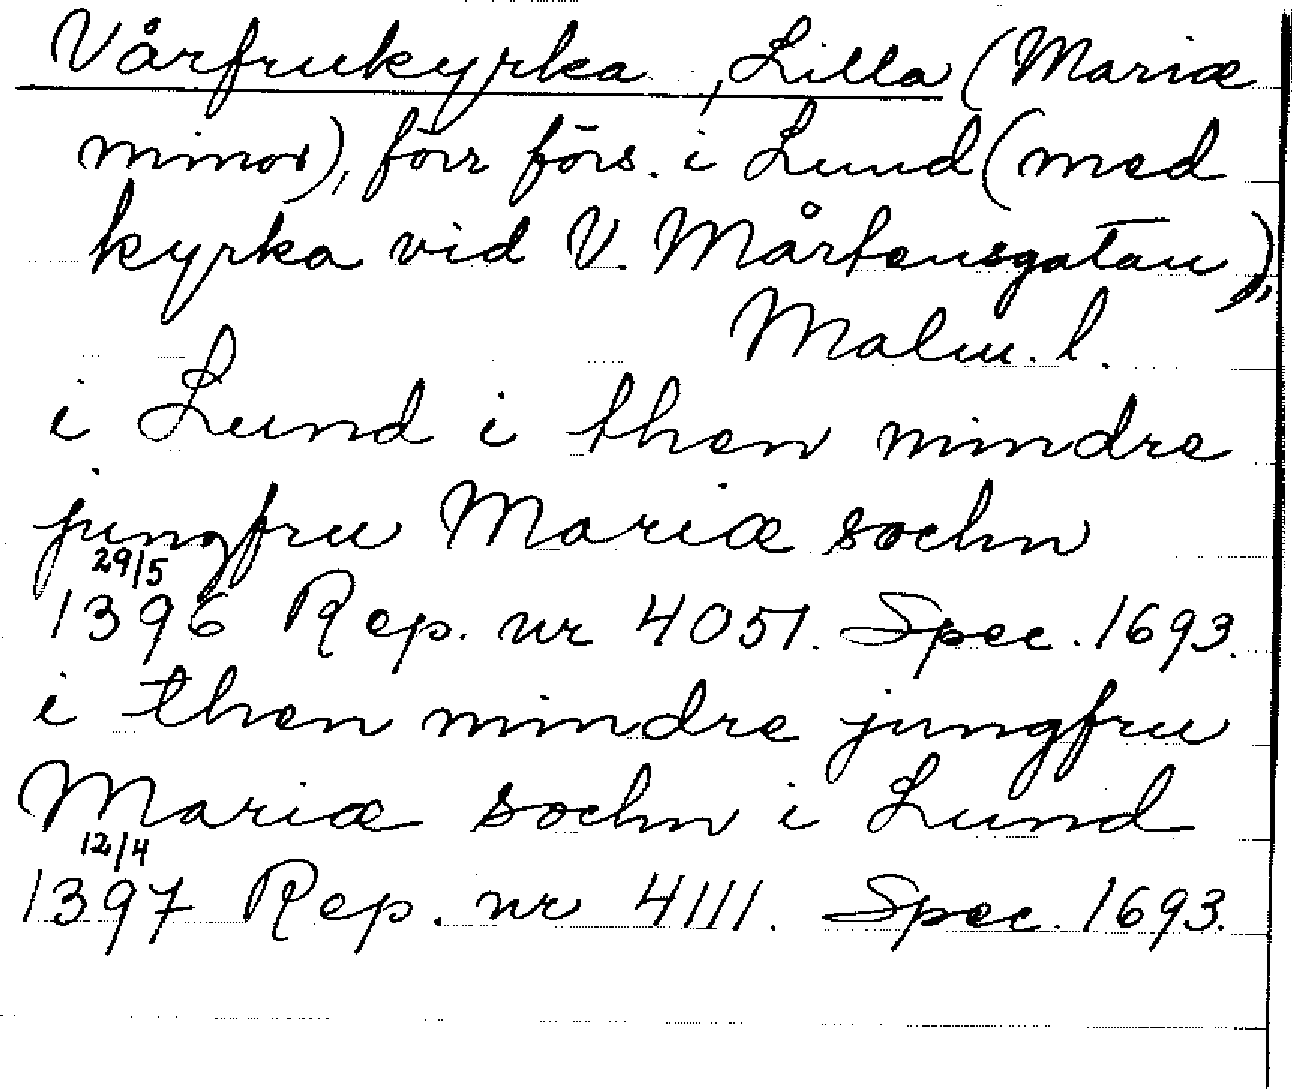 Vårfrukyrka, Lilla (Mariæ
minor), förr förs. i Lund (med
kyrka vid V. Mårtensgatan),
Malm. l.
i Lund i then mindre
jungfru Mariæ sochn
29/5
1396 Rep. nr 4051. Spec. 1693.
i then mindre jungfru
Mariæ sochn i Lund
12/4
1397 Rep. nr 4111. Spec. 1693.